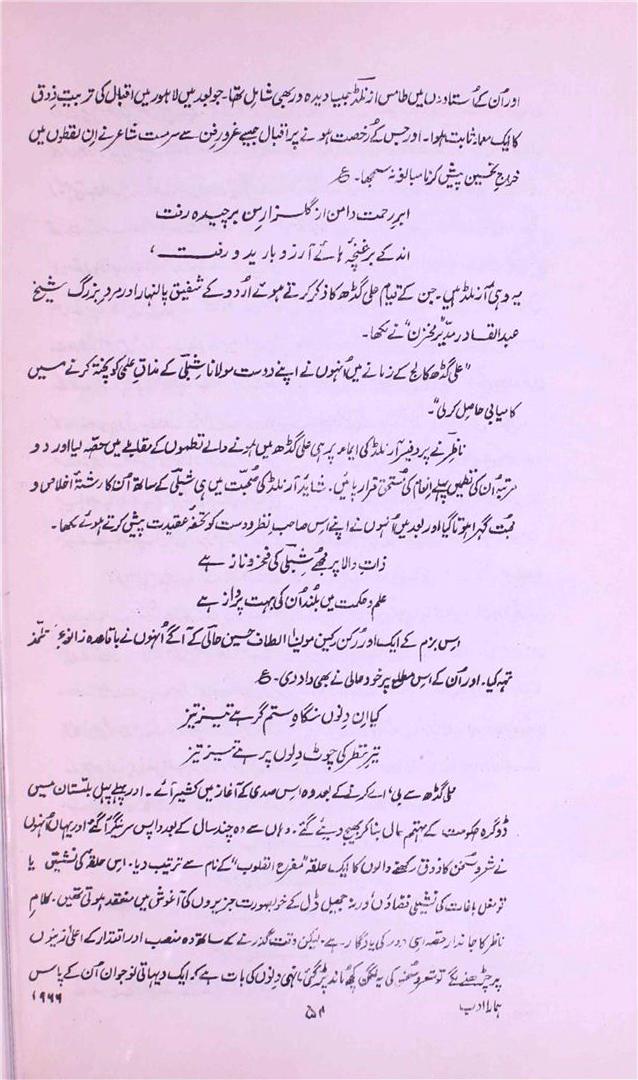 اور اُن کے اُستادوں میں طامس ارنلڈ جیسا دیدہ ور بھی شامل تھا۔ جو بعد میں لاہور میں اقبال کی تربیتِ ذوق
کا ایک معمار ثابت ہوا۔ اور جس کے رُخصت ہونے پر اقبال جیسے غرورِ فن سے سرمست شاعر نے اِن لفظوں میں
خراجِ تحسین پیش کرنا مبالغہ نہ سمجھا۔ ؏
ابرِ رحمت دامن از گلزارِ من برچیدہ رفت
اند کے بر غنچہ ہائے آرزو بارید و رفت
یہ وہی آرنلڈ ہیں۔ جن کے قیام علی گڈھ کا ذکر کرتے ہوئے اُردو کے شفیق پالنہار اور مردِ بزرگ شیخ
عبدالقادر مدیر "مخزن" نے لکھا۔
"علی گڈھ کالج کے زمانے میں اُنہوں نے اپنے دوست مولانا شبلی کے مذاقِ علمی کو پختہ کرنے میں
کامیابی حاصل کر لی"۔
ناظر نے پروفیسر آرنلڈ کی ایماء پر ہی علی گڈھ میں ہونے والے نظموں کے مقابلے میں حصہ لیا اور دو
مرتبہ اُن کی نظمیں پہلے انعام کی مستحق قرار پائیں۔ شاید آرنلڈ کی صحبت میں ہی شبلی کے ساتھ اُن کا رشتۂ اخلاص و
محبت گہرا ہوتا گیا اور بعد میں اُنہوں نے اپنے اس صاحبِ نظر دوست کو تحفۂ عقیدت پیش کرتے ہوئے لکھا۔
ذات والا پر مجھے شبلی کی فخر و ناز ہے
علم و حکمت میں بلند اُن کی بہت پرواز ہے
اِس بزم کے ایک اور رکنِ رکین مولینا الطاف حسین حالی کے آگے اُنہوں نے باقاعدہ زانوئے تلمذ
تہہ کیا۔ اور اُن کے اس مطلع پر خود حالی نے بھی داد دی۔ ؏
کیا اِن دِنوں نگاہِ ستم گر ہے تیز تیز
تیرِ نظر کی چوٹ دلوں پر ہے تیز تیز
علی گڈھ سے بی۔ اے کرنے کے بعد وہ اس صدی کے آغاز میں کشمیر آئے۔ اور پہلے پہل بلتستان میں
ڈوگرہ حکومت کے مہتمم مال بنا کر بھیج دیئے گئے۔ وہاں سے وہ چند سال کے بعد واپس سرینگر آگئے اور یہاں اُنہوں
نے شعر و سخن کا ذوق رکھنے والوں کا ایک حلقہ "مفرح القلوب" کے نام سے ترتیب دیا۔ اس حلقہ کی نشستیں یا
تو مغل باغات کی نشیلی فضاؤں اور یا جھیل ڈل کے خوبصورت جزیروں کی آغوش میں منعقد ہوتی تھیں۔ کلامِ
ناظر کا جاندار حصہ اسی دور کی یادگار ہے۔ لیکن وقت گذرنے کے ساتھ وہ منصب اور اقتدار کے اعلیٰ زینوں
پر چڑھنے لگے تو شعر و سخن کی یہ لگن کچھ ماند پڑ گئی۔ انہی دِنوں کی بات ہے کہ ایک دیہاتی نوجوان اُن کے پاس
ہمارا ادب ۱۹۶۶